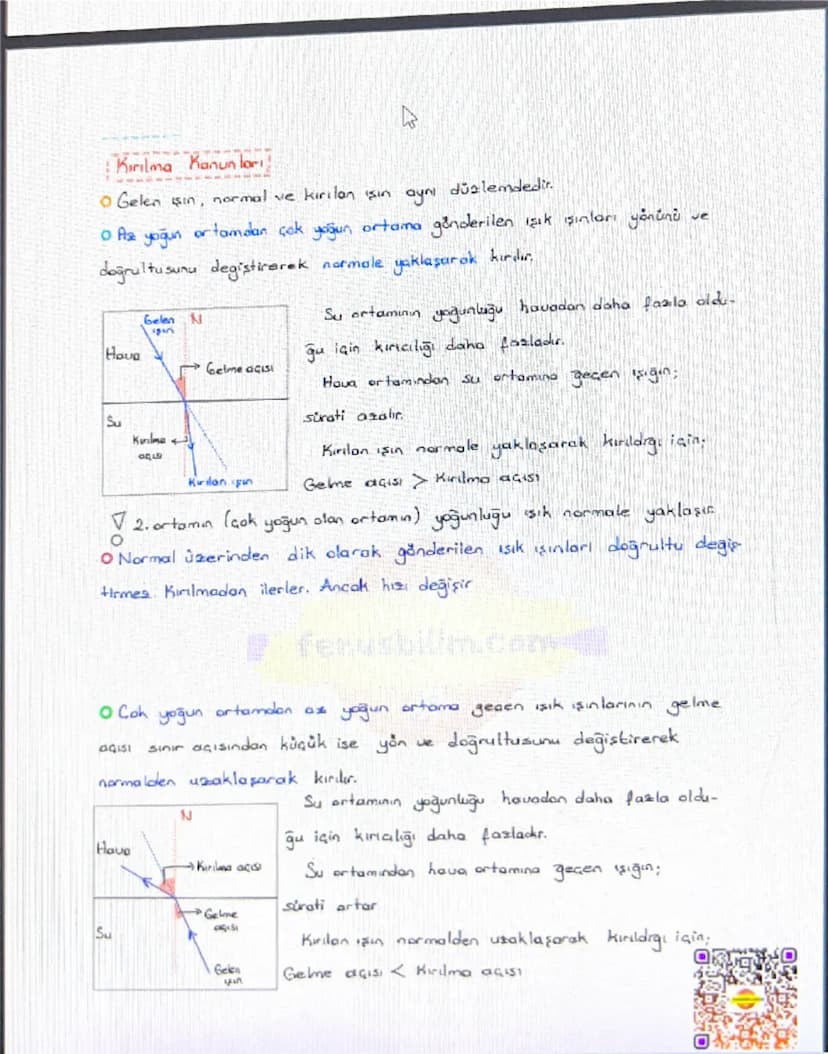 Kırılma Kanunları
Gelen ışın, normal ve kırılan ışın aynı düzlemdedir.
Az yoğun ortamdan çok yoğun ortama gönderilen ışık ışınları yönünü ve
doğrultusunu değiştirerek normale yaklaşarak kırılır.
Gelen ışın
N
Hava
Gelme açısı
Su
Kırılma açısı
Kırılan ışın
Su ortamının yoğunluğu havadan daha fazla oldu-
ğu için kırıcılığı daha fazladır.
Hava ortamından su ortamına geçen ışığın;
sürati azalır.
Kırılan ışın normale yaklaşarak kırıldığı için;
Gelme açısı > Kırılma açısı
2. ortamın (çok yoğun olan ortamın) yoğunluğu ışık normale yaklaşır.
Normal üzerinden dik olarak gönderilen ışık ışınları doğrultu değiş-
tirmez. Kırılmadan ilerler. Ancak hızı değişir
fenusbilim.com
Çok yoğun ortamdan az yoğun ortama geçen ışık ışınlarının gelme
açısı sınır açısından küçük ise yön ve doğrultusunu değiştirerek
normalden uzaklaşarak kırılır.
N
Hava
Kırılma açısı
Su
Gelme açısı
Gelen ışın
Su ortamının yoğunluğu havadan daha fazla oldu-
ğu için kırıcılığı daha fazladır.
Su ortamından hava ortamına geçen ışığın;
sürati artar
Kırılan ışın normalden uzaklaşarak kırıldığı için;
Gelme açısı < Kırılma açısı